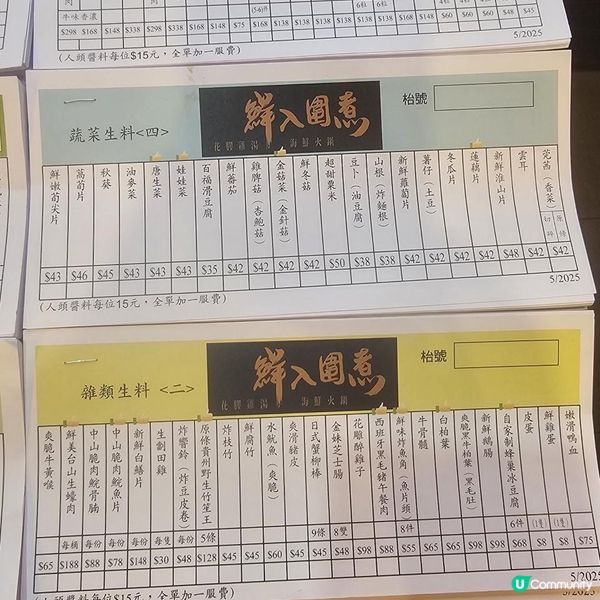 牛味香濃
$298 $168 $148 $148 $75 $168 $138 $138 $168 $138 $138 $138 $48 $45
(人頭醬料每位$15元，全單加一服費)
5/2025
蔬菜生料<四>
鮮入圍煮
花膠雞湯 海鮮火鍋
枱號
鮮嫩荀尖片 $43
萵荀片 $46
秋葵 $45
油麥菜 $43
唐生菜 $43
娃娃菜 $43
百福滑豆腐 $35
鮮蕃茄 $42
雞脾菇（杏鮑菇） $42
金菇菜（金針菇） $42
鮮冬菇 $42
超甜粟米 $50
豆卜（油豆腐） $38
山根（炸麵根） $38
新鮮蘿蔔片 $42
薯仔（土豆） $42
冬瓜片 $42
蓮藕片 $42
新鮮淮山片 $48
雲耳 $42
芫茜（香菜） 切碎 原條 $42
(人頭醬料每位15元，全單加一服費)
5/2025
雜類生料 <二>
鮮入圍煮
花膠雞湯 海鮮火鍋
枱號
爽脆牛黃喉 $65
鮮美台山生蠔肉 每桶 $188
中山脆肉鯇骨腩 每份 $88
中山脆肉鯇魚片 每份 $78
新鮮白鱔片 每份 $148
生劏田雞 每隻 $30
炸響鈴（炸豆皮卷） 每份 $48
原條貴州野生竹笙王 5條 $128
炸枝竹 $45
鮮腐竹 $45
水魷魚（爽脆） $60
爽滑豬皮 $45
日式蟹柳棒 9條 $45
金妹芝士腸 8雙 $48
花雕醉雞子 $88
西班牙黑毛豬午餐肉 $88
鮮味炸魚角（魚片頭） 8件 $55
牛骨髓 $65
白柏葉 $65
爽脆黑牛柏葉（黑毛肚） $98
新鮮鵝腸 $98
自家制蜂巢冰豆腐 6件 $68
皮蛋 (1隻) $8
鮮雞蛋 (1隻) $8
嫩滑鴨血 $75
(人頭醬料每位$15元，全單加一服費)
5/2025
U Community